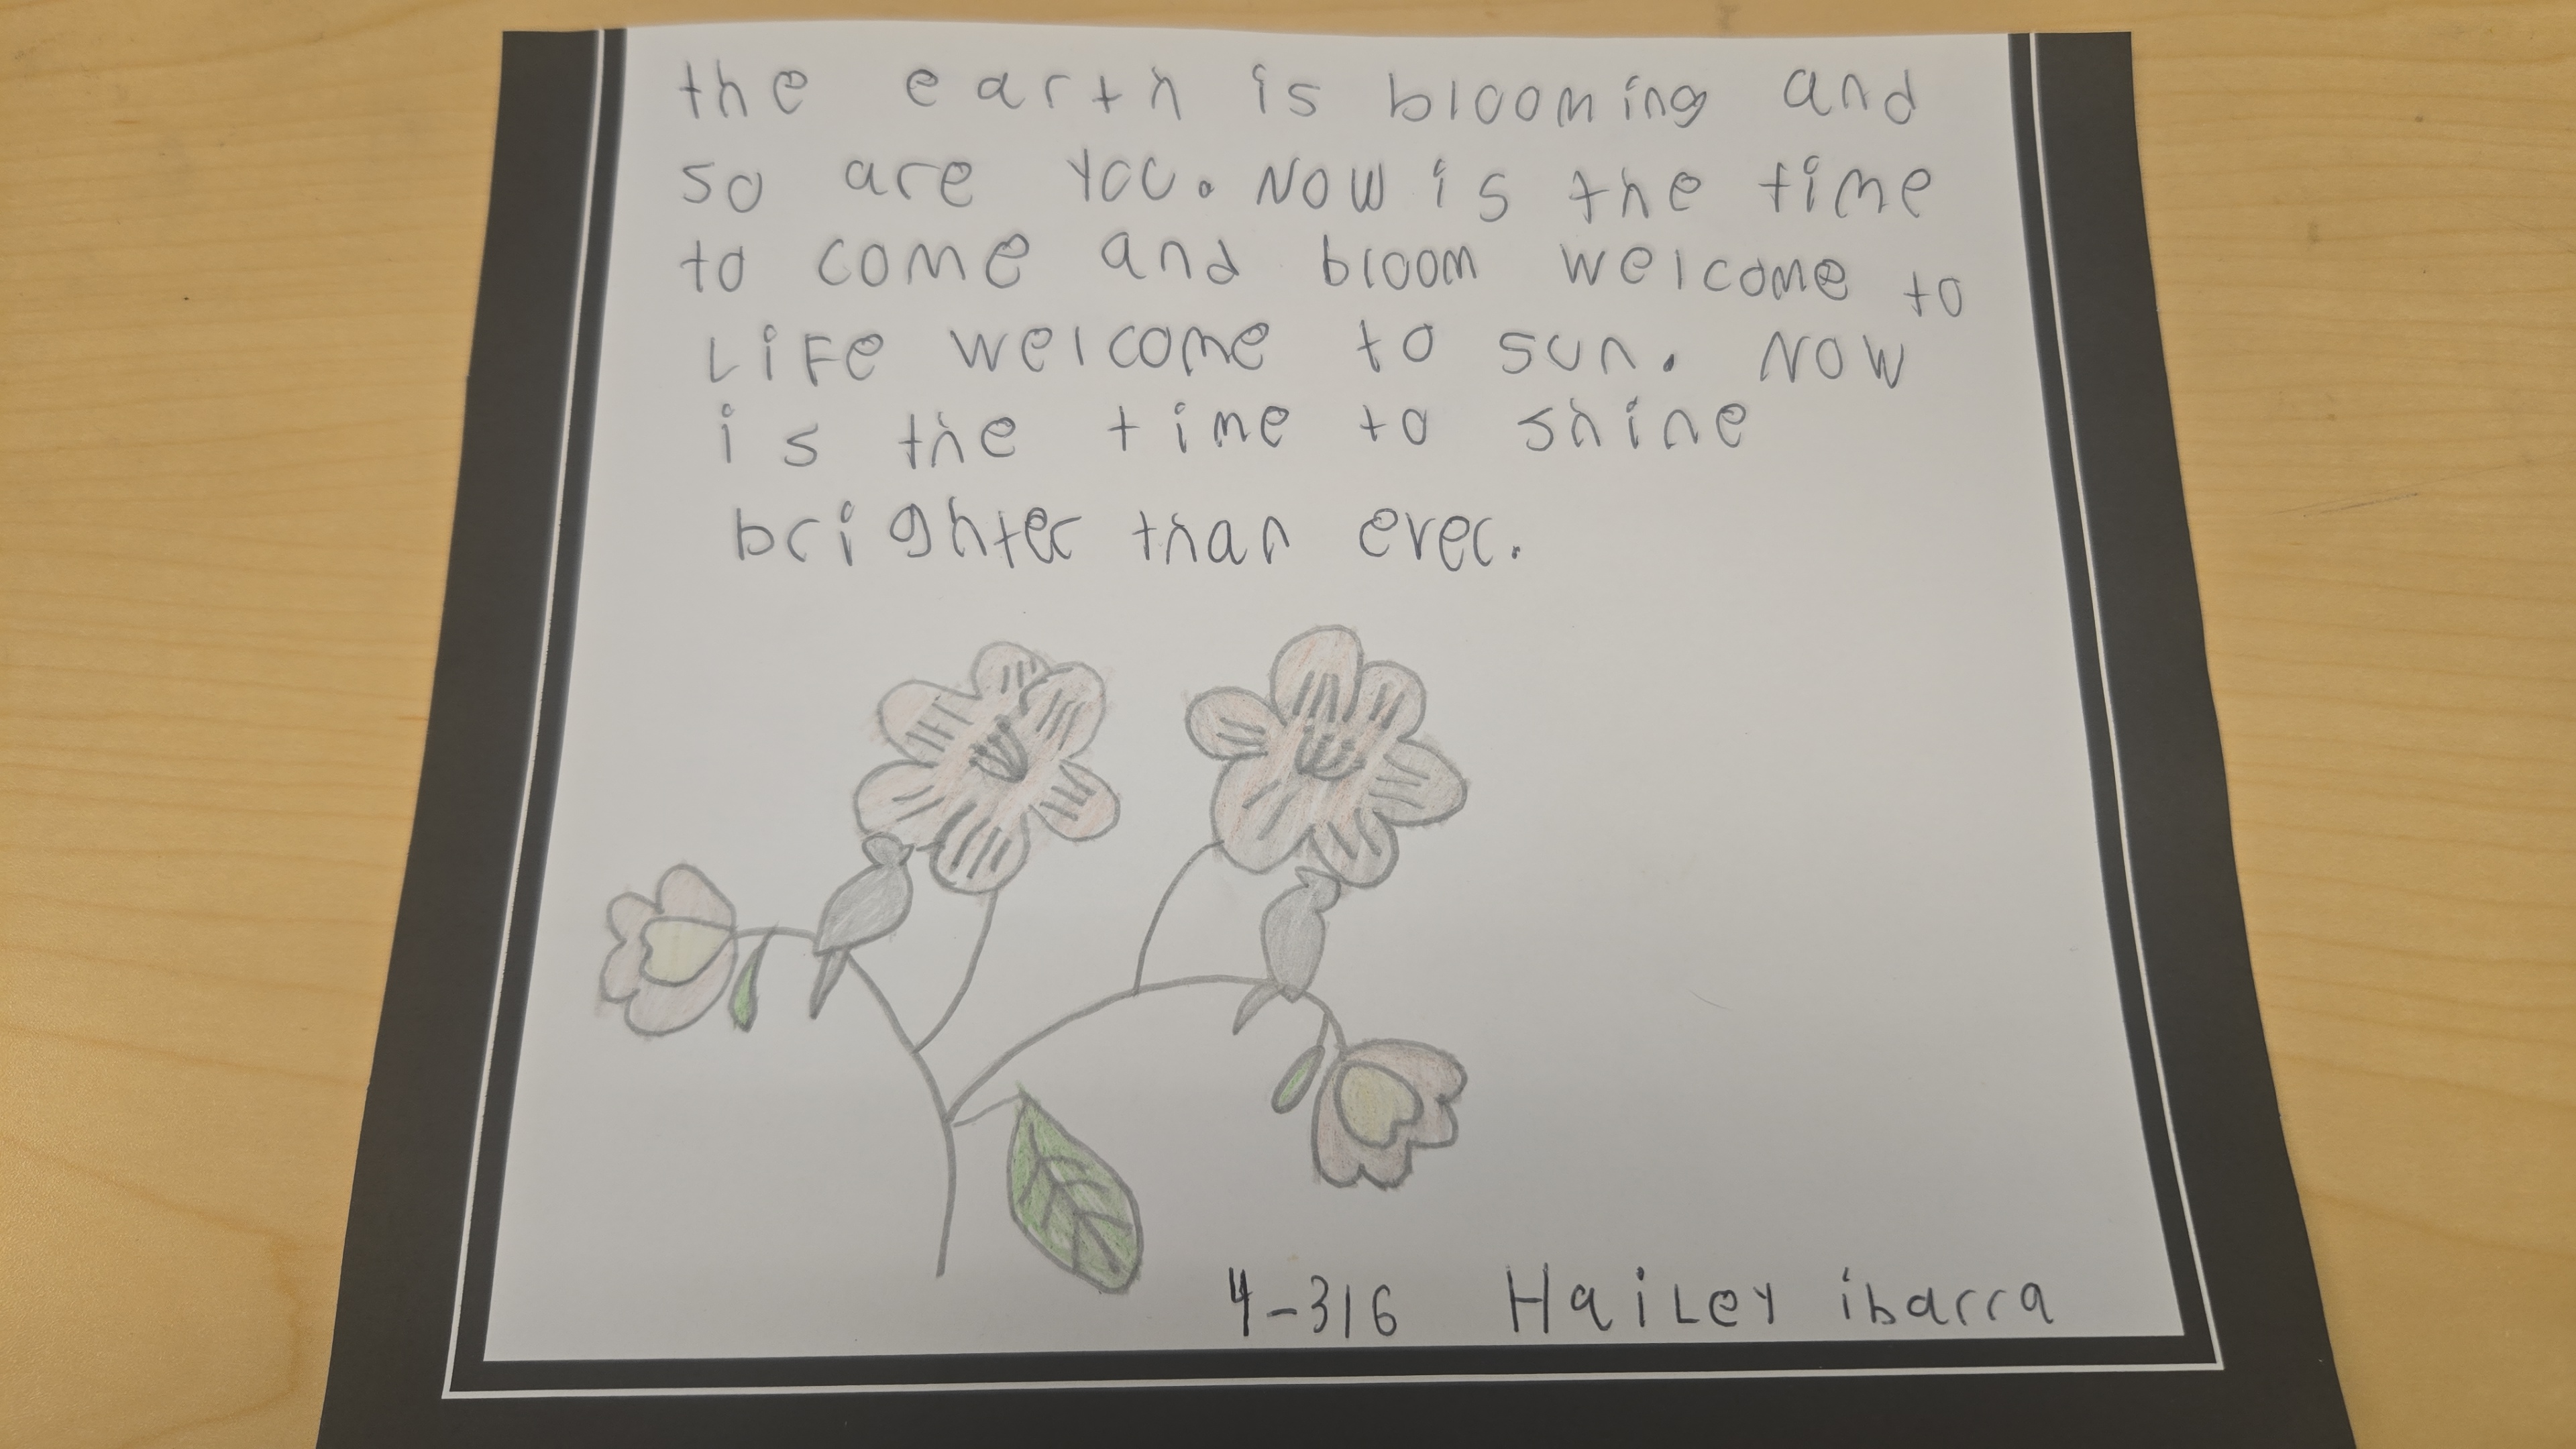 the earth is blooming and
so are you. Now is the time
to come and bloom welcome to
LiFe welcome to sun. Now
is the time to shine
brighter than ever.
4-316 HaiLey ibarra